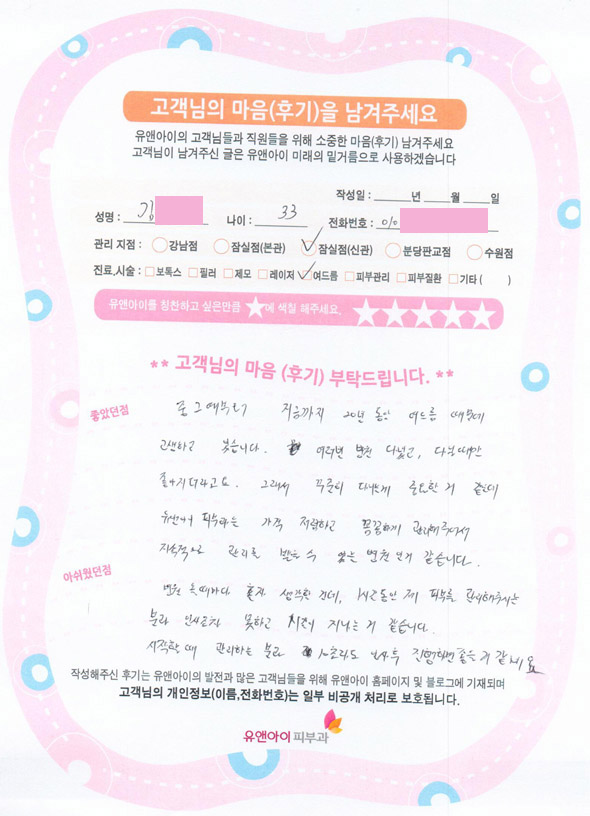 고객님의 마음(후기)을 남겨주세요
유앤아이의 고객님들과 직원들을 위해 소중한 마음(후기) 남겨주세요
고객님이 남겨주신 글은 유앤아이 미래의 밑거름으로 사용하겠습니다
작성일 : 년 월 일
성명 : 김 나이 : 33 전화번호 : 010
관리 지점 : 강남점 잠실점(본관) 잠실점(신관) 분당판교점 수원점
진료,시술 : 보톡스 필러 제모 레이저 여드름 피부관리 피부질환 기타 ( )
유앤아이를 칭찬하고 싶은만큼 ★에 색칠 해주세요. ★★★★★
** 고객님의 마음 (후기) 부탁드립니다. **
좋았던점
중2때부터 지금까지 20년 동안 여드름 때문에
고생하고 있습니다. 여러번 병원 다녔고, 다닐때만
좋아지더라고요. 그래서 꾸준히 다니는게 중요한 거 같은데
유앤아이 피부과는 가격 저렴하고 꼼꼼하게 관리해주어서
지속적으로 관리를 받을 수 있는 병원인거 같습니다.
아쉬웠던점
병원 올때마다 생각한 건데, 1시간동안 제 피부를 관리해주시는
분과 인사조차 못하고 시간이 지나는 거 같습니다.
시작할 때 관리하는 분과 인사 진행하면 좋을 거 같네요
작성해주신 후기는 유앤아이의 발전과 많은 고객님들을 위해 유앤아이 홈페이지 및 블로그에 기재되며
고객님의 개인정보(이름,전화번호)는 일부 비공개 처리로 보호됩니다.
유앤아이 피부과